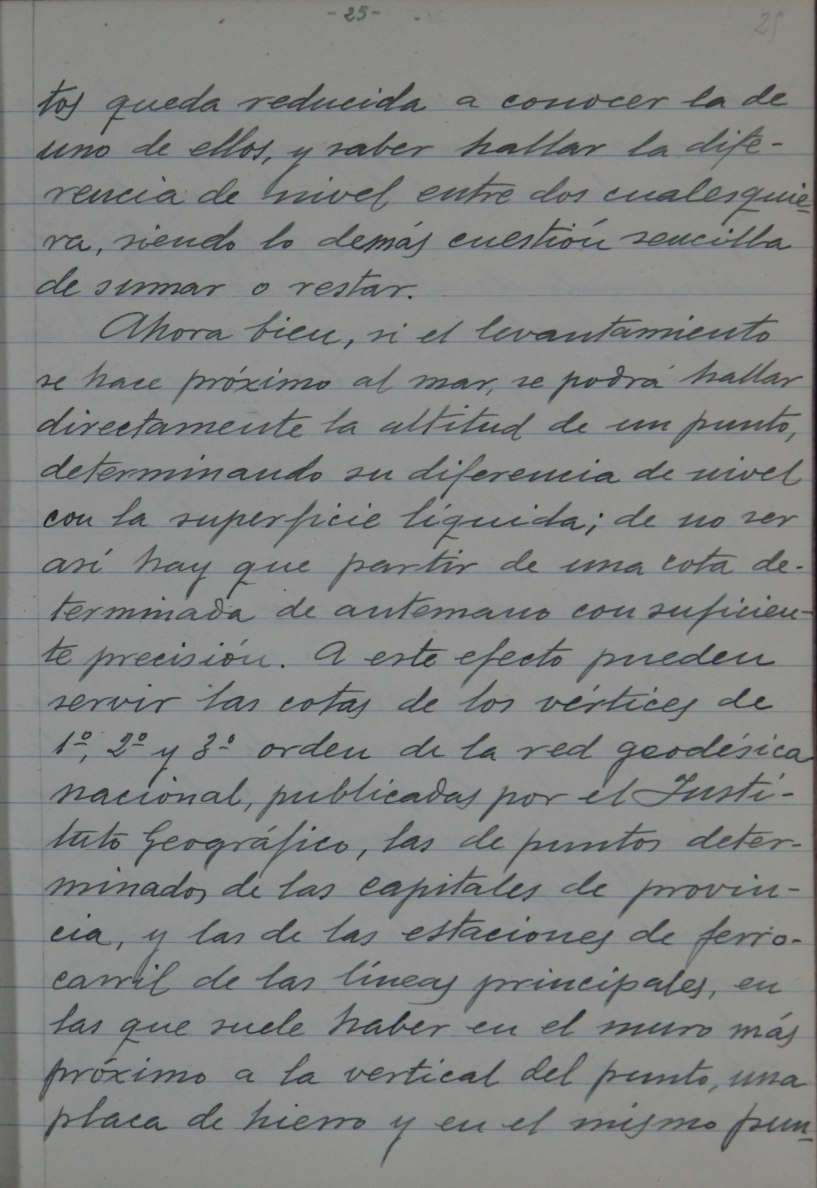 - 25 -
25
tos queda reducida a conocer la de
uno de ellos, y saber hallar la dife-
rencia de nivel entre dos cualesquie-
ra, siendo lo demás cuestión sencilla
de sumar o restar.
Ahora bien, si el levantamiento
se hace próximo al mar, se podrá hallar
directamente la altitud de un punto,
determinando su diferencia de nivel
con la superficie líquida; de no ser
así hay que partir de una cota de-
terminada de antemano con suficien-
te precisión. A este efecto pueden
servir las cotas de los vértices de
1º, 2º y 3º orden de la red geodésica
nacional, publicadas por el Insti-
tuto Geográfico, las de puntos deter-
minados de las capitales de provin-
cia, y las de las estaciones de ferro-
carril de las líneas principales, en
las que suele haber en el muro más
próximo a la vertical del punto, una
placa de hierro y en el mismo pun-